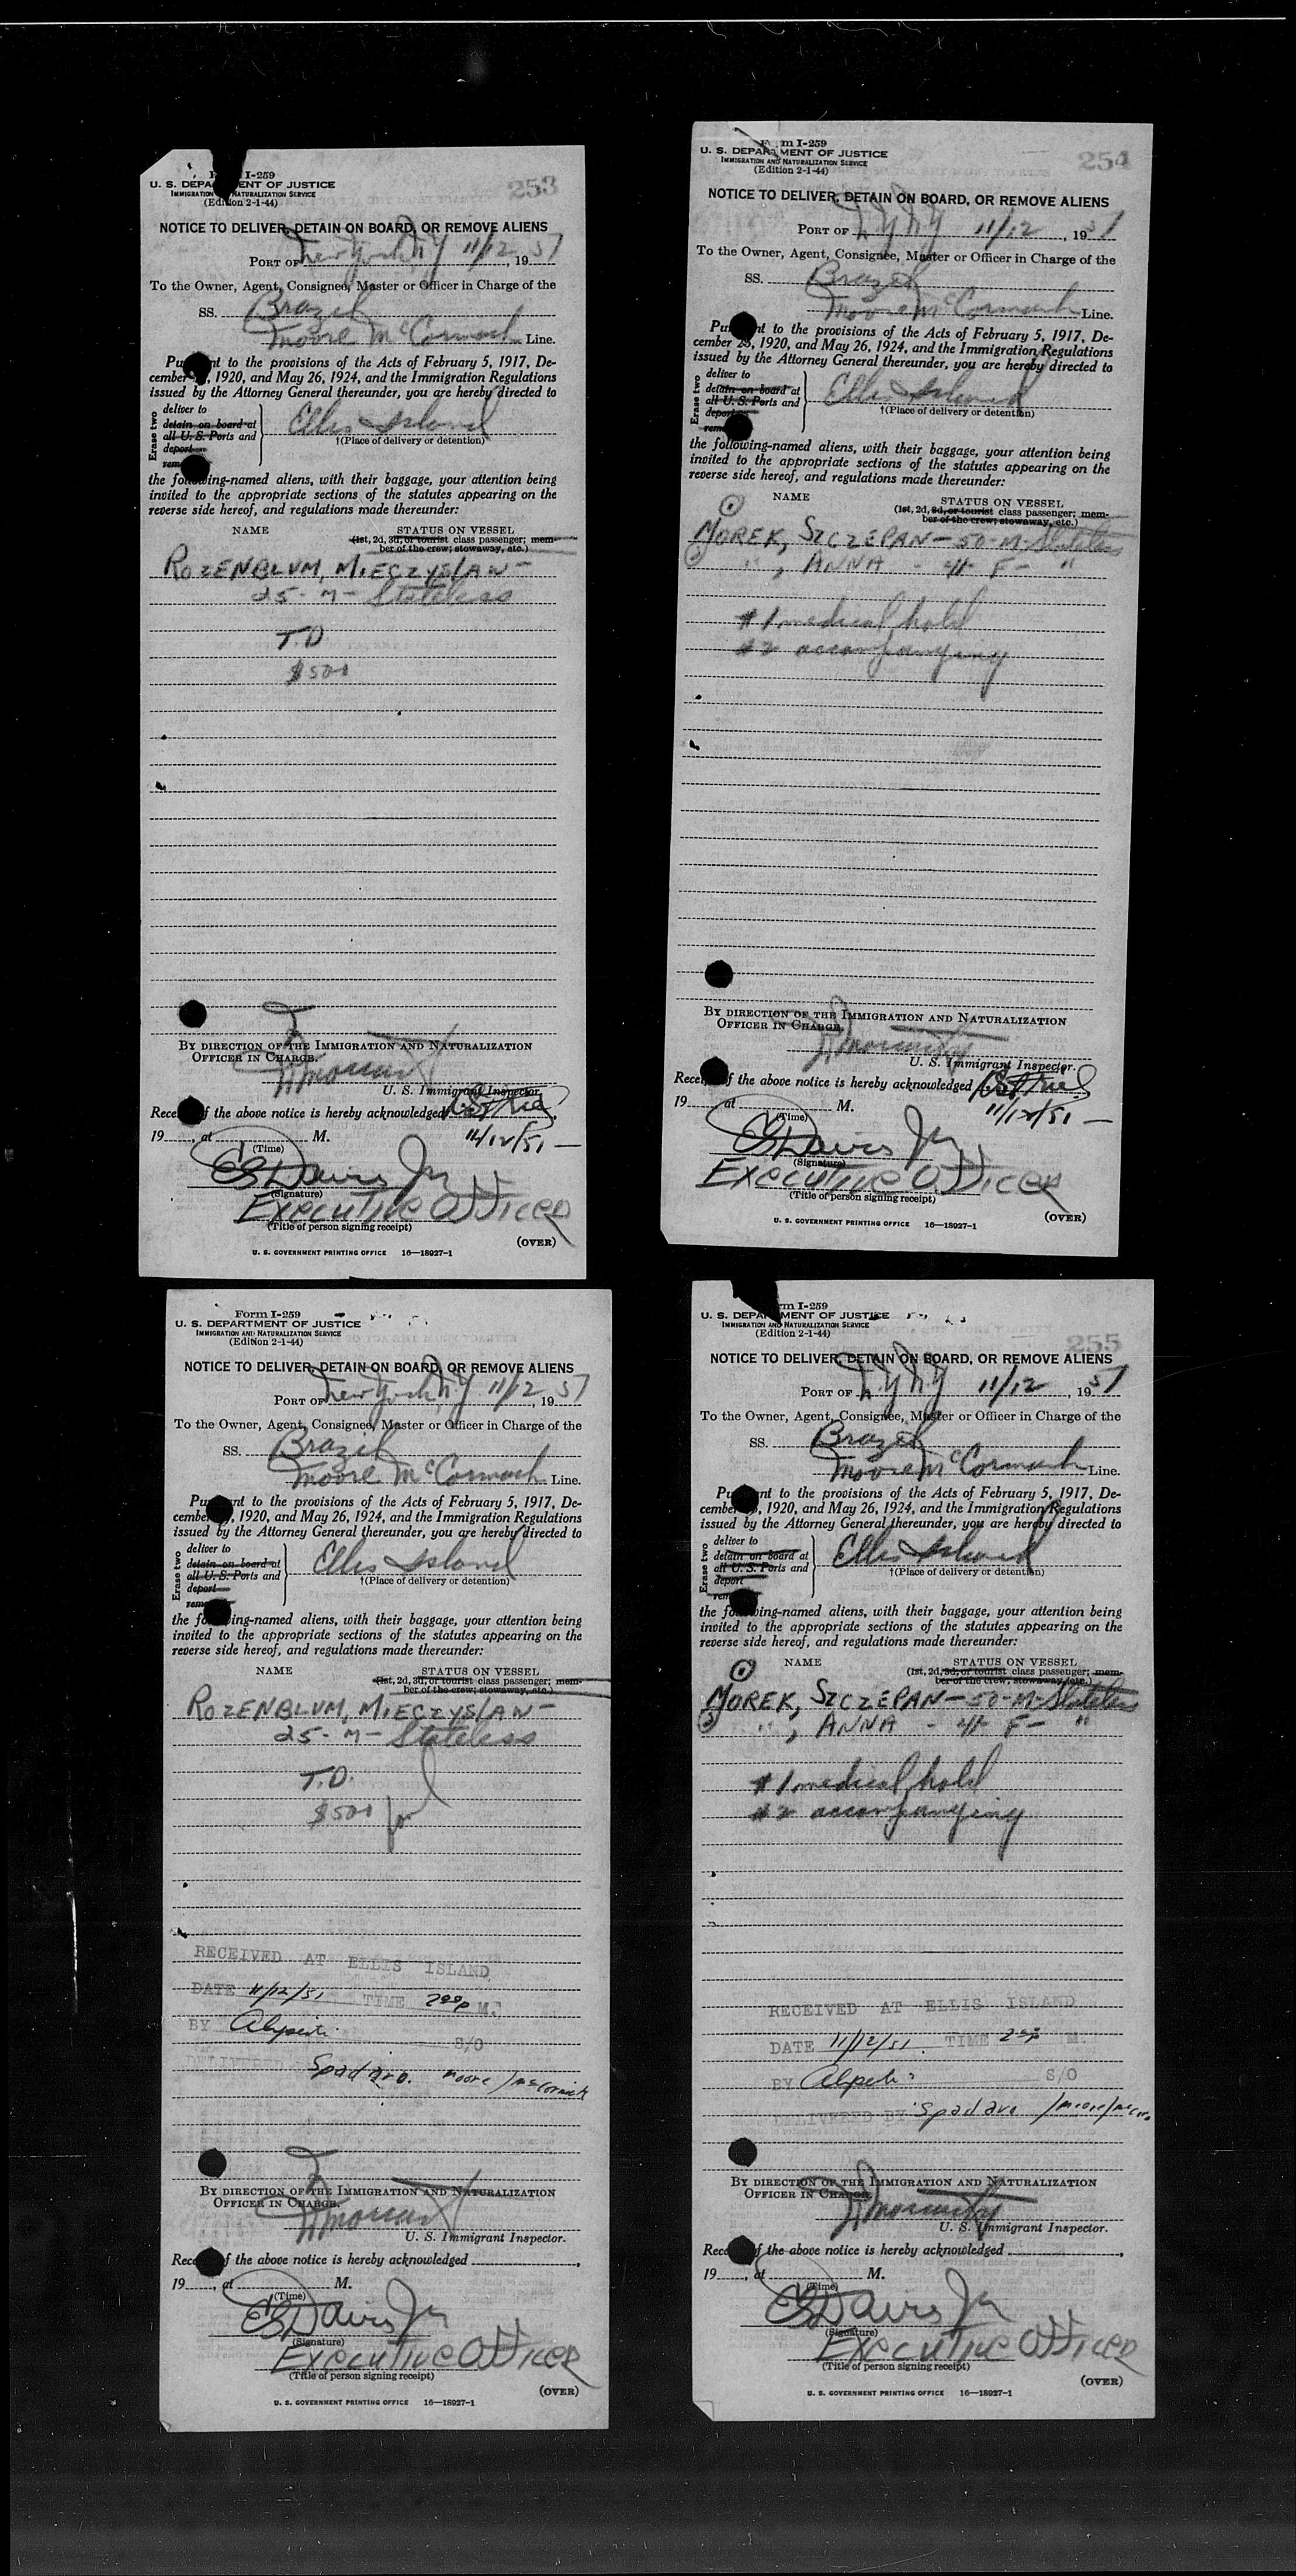 Form I-259
U. S. DEPARTMENT OF JUSTICE
IMMIGRATION AND NATURALIZATION SERVICE
(Edition 2-1-44)
253
NOTICE TO DELIVER, DETAIN ON BOARD, OR REMOVE ALIENS
PORT OF New York NY 11/12, 1951
To the Owner, Agent, Consignee, Master or Officer in Charge of the
SS. Brazil
Moore McCormack Line.
Pursuant to the provisions of the Acts of February 5, 1917, De-
cember 26, 1920, and May 26, 1924, and the Immigration Regulations
issued by the Attorney General thereunder, you are hereby directed to
Erase two
deliver to
detain on board at
all U. S. Ports and
deport
Ellis Island
†(Place of delivery or detention)
the following-named aliens, with their baggage, your attention being
invited to the appropriate sections of the statutes appearing on the
reverse side hereof, and regulations made thereunder:
NAME STATUS ON VESSEL
(1st, 2d, 3d, or tourist class passenger; mem-
ber of the crew; stowaway, etc.)
ROZENBLUM, MIECZYSLAW -
25 - M - Stateless
T.D
$500
BY DIRECTION OF THE IMMIGRATION AND NATURALIZATION
OFFICER IN CHARGE.
U. S. Immigrant Inspector.
Receipt of the above notice is hereby acknowledged
11/12/51
19 , at M.
(Time)
ES Davis Jr
(Signature)
EXECUTIVE OFFICER
(Title of person signing receipt)
(OVER)
U. S. GOVERNMENT PRINTING OFFICE 16—18927-1
Form I-259
U. S. DEPARTMENT OF JUSTICE
IMMIGRATION AND NATURALIZATION SERVICE
(Edition 2-1-44)
254
NOTICE TO DELIVER, DETAIN ON BOARD, OR REMOVE ALIENS
PORT OF NY NY 11/12, 1951
To the Owner, Agent, Consignee, Master or Officer in Charge of the
SS. Brazil
Moore McCormack Line.
Pursuant to the provisions of the Acts of February 5, 1917, De-
cember 26, 1920, and May 26, 1924, and the Immigration Regulations
issued by the Attorney General thereunder, you are hereby directed to
Erase two
deliver to
detain on board at
all U. S. Ports and
deport
Ellis Island
†(Place of delivery or detention)
the following-named aliens, with their baggage, your attention being
invited to the appropriate sections of the statutes appearing on the
reverse side hereof, and regulations made thereunder:
NAME STATUS ON VESSEL
(1st, 2d, 3d, or tourist class passenger; mem-
ber of the crew; stowaway, etc.)
① MOREK, SZCZEPAN - 50 - M - Stateless
② " , ANNA - 41 F - "
#1 medical hold
#2 accompanying
BY DIRECTION OF THE IMMIGRATION AND NATURALIZATION
OFFICER IN CHARGE.
U. S. Immigrant Inspector.
Receipt of the above notice is hereby acknowledged
11/12/51
19 , at M.
(Time)
ES Davis Jr
(Signature)
EXECUTIVE OFFICER
(Title of person signing receipt)
(OVER)
U. S. GOVERNMENT PRINTING OFFICE 16—18927-1
Form I-259
U. S. DEPARTMENT OF JUSTICE
IMMIGRATION AND NATURALIZATION SERVICE
(Edition 2-1-44)
NOTICE TO DELIVER, DETAIN ON BOARD, OR REMOVE ALIENS
PORT OF New York NY 11/12, 1951
To the Owner, Agent, Consignee, Master or Officer in Charge of the
SS. Brazil
Moore McCormack Line.
Pursuant to the provisions of the Acts of February 5, 1917, De-
cember 26, 1920, and May 26, 1924, and the Immigration Regulations
issued by the Attorney General thereunder, you are hereby directed to
Erase two
deliver to
detain on board at
all U. S. Ports and
deport
Ellis Island
†(Place of delivery or detention)
the following-named aliens, with their baggage, your attention being
invited to the appropriate sections of the statutes appearing on the
reverse side hereof, and regulations made thereunder:
NAME STATUS ON VESSEL
(1st, 2d, 3d, or tourist class passenger; mem-
ber of the crew; stowaway, etc.)
ROZENBLUM, MIECZYSLAW -
25 - M - Stateless
T.D.
$500
RECEIVED AT ELLIS ISLAND
DATE 11/12/51 TIME 200p M.
BY S/O
DELIVERED Spadaro. Moore/McCormick
BY DIRECTION OF THE IMMIGRATION AND NATURALIZATION
OFFICER IN CHARGE.
U. S. Immigrant Inspector.
Receipt of the above notice is hereby acknowledged
19 , at M.
(Time)
ES Davis Jr
(Signature)
EXECUTIVE OFFICER
(Title of person signing receipt)
(OVER)
U. S. GOVERNMENT PRINTING OFFICE 16—18927-1
Form I-259
U. S. DEPARTMENT OF JUSTICE
IMMIGRATION AND NATURALIZATION SERVICE
(Edition 2-1-44)
255
NOTICE TO DELIVER, DETAIN ON BOARD, OR REMOVE ALIENS
PORT OF NY NY 11/12, 1951
To the Owner, Agent, Consignee, Master or Officer in Charge of the
SS. Brazil
Moore McCormack Line.
Pursuant to the provisions of the Acts of February 5, 1917, De-
cember 26, 1920, and May 26, 1924, and the Immigration Regulations
issued by the Attorney General thereunder, you are hereby directed to
Erase two
deliver to
detain on board at
all U. S. Ports and
deport
Ellis Island
†(Place of delivery or detention)
the following-named aliens, with their baggage, your attention being
invited to the appropriate sections of the statutes appearing on the
reverse side hereof, and regulations made thereunder:
NAME STATUS ON VESSEL
(1st, 2d, 3d, or tourist class passenger; mem-
ber of the crew; stowaway, etc.)
① MOREK, SZCZEPAN - 50 - M - Stateless
② " , ANNA - 41 F - "
#1 medical hold
#2 accompanying
RECEIVED AT ELLIS ISLAND
DATE 11/12/51. TIME 2 00p M.
BY S/O
DELIVERED BY Spadaro
BY DIRECTION OF THE IMMIGRATION AND NATURALIZATION
OFFICER IN CHARGE.
U. S. Immigrant Inspector.
Receipt of the above notice is hereby acknowledged
19 , at M.
(Time)
ES Davis Jr
(Signature)
EXECUTIVE OFFICER
(Title of person signing receipt)
(OVER)
U. S. GOVERNMENT PRINTING OFFICE 16—18927-1